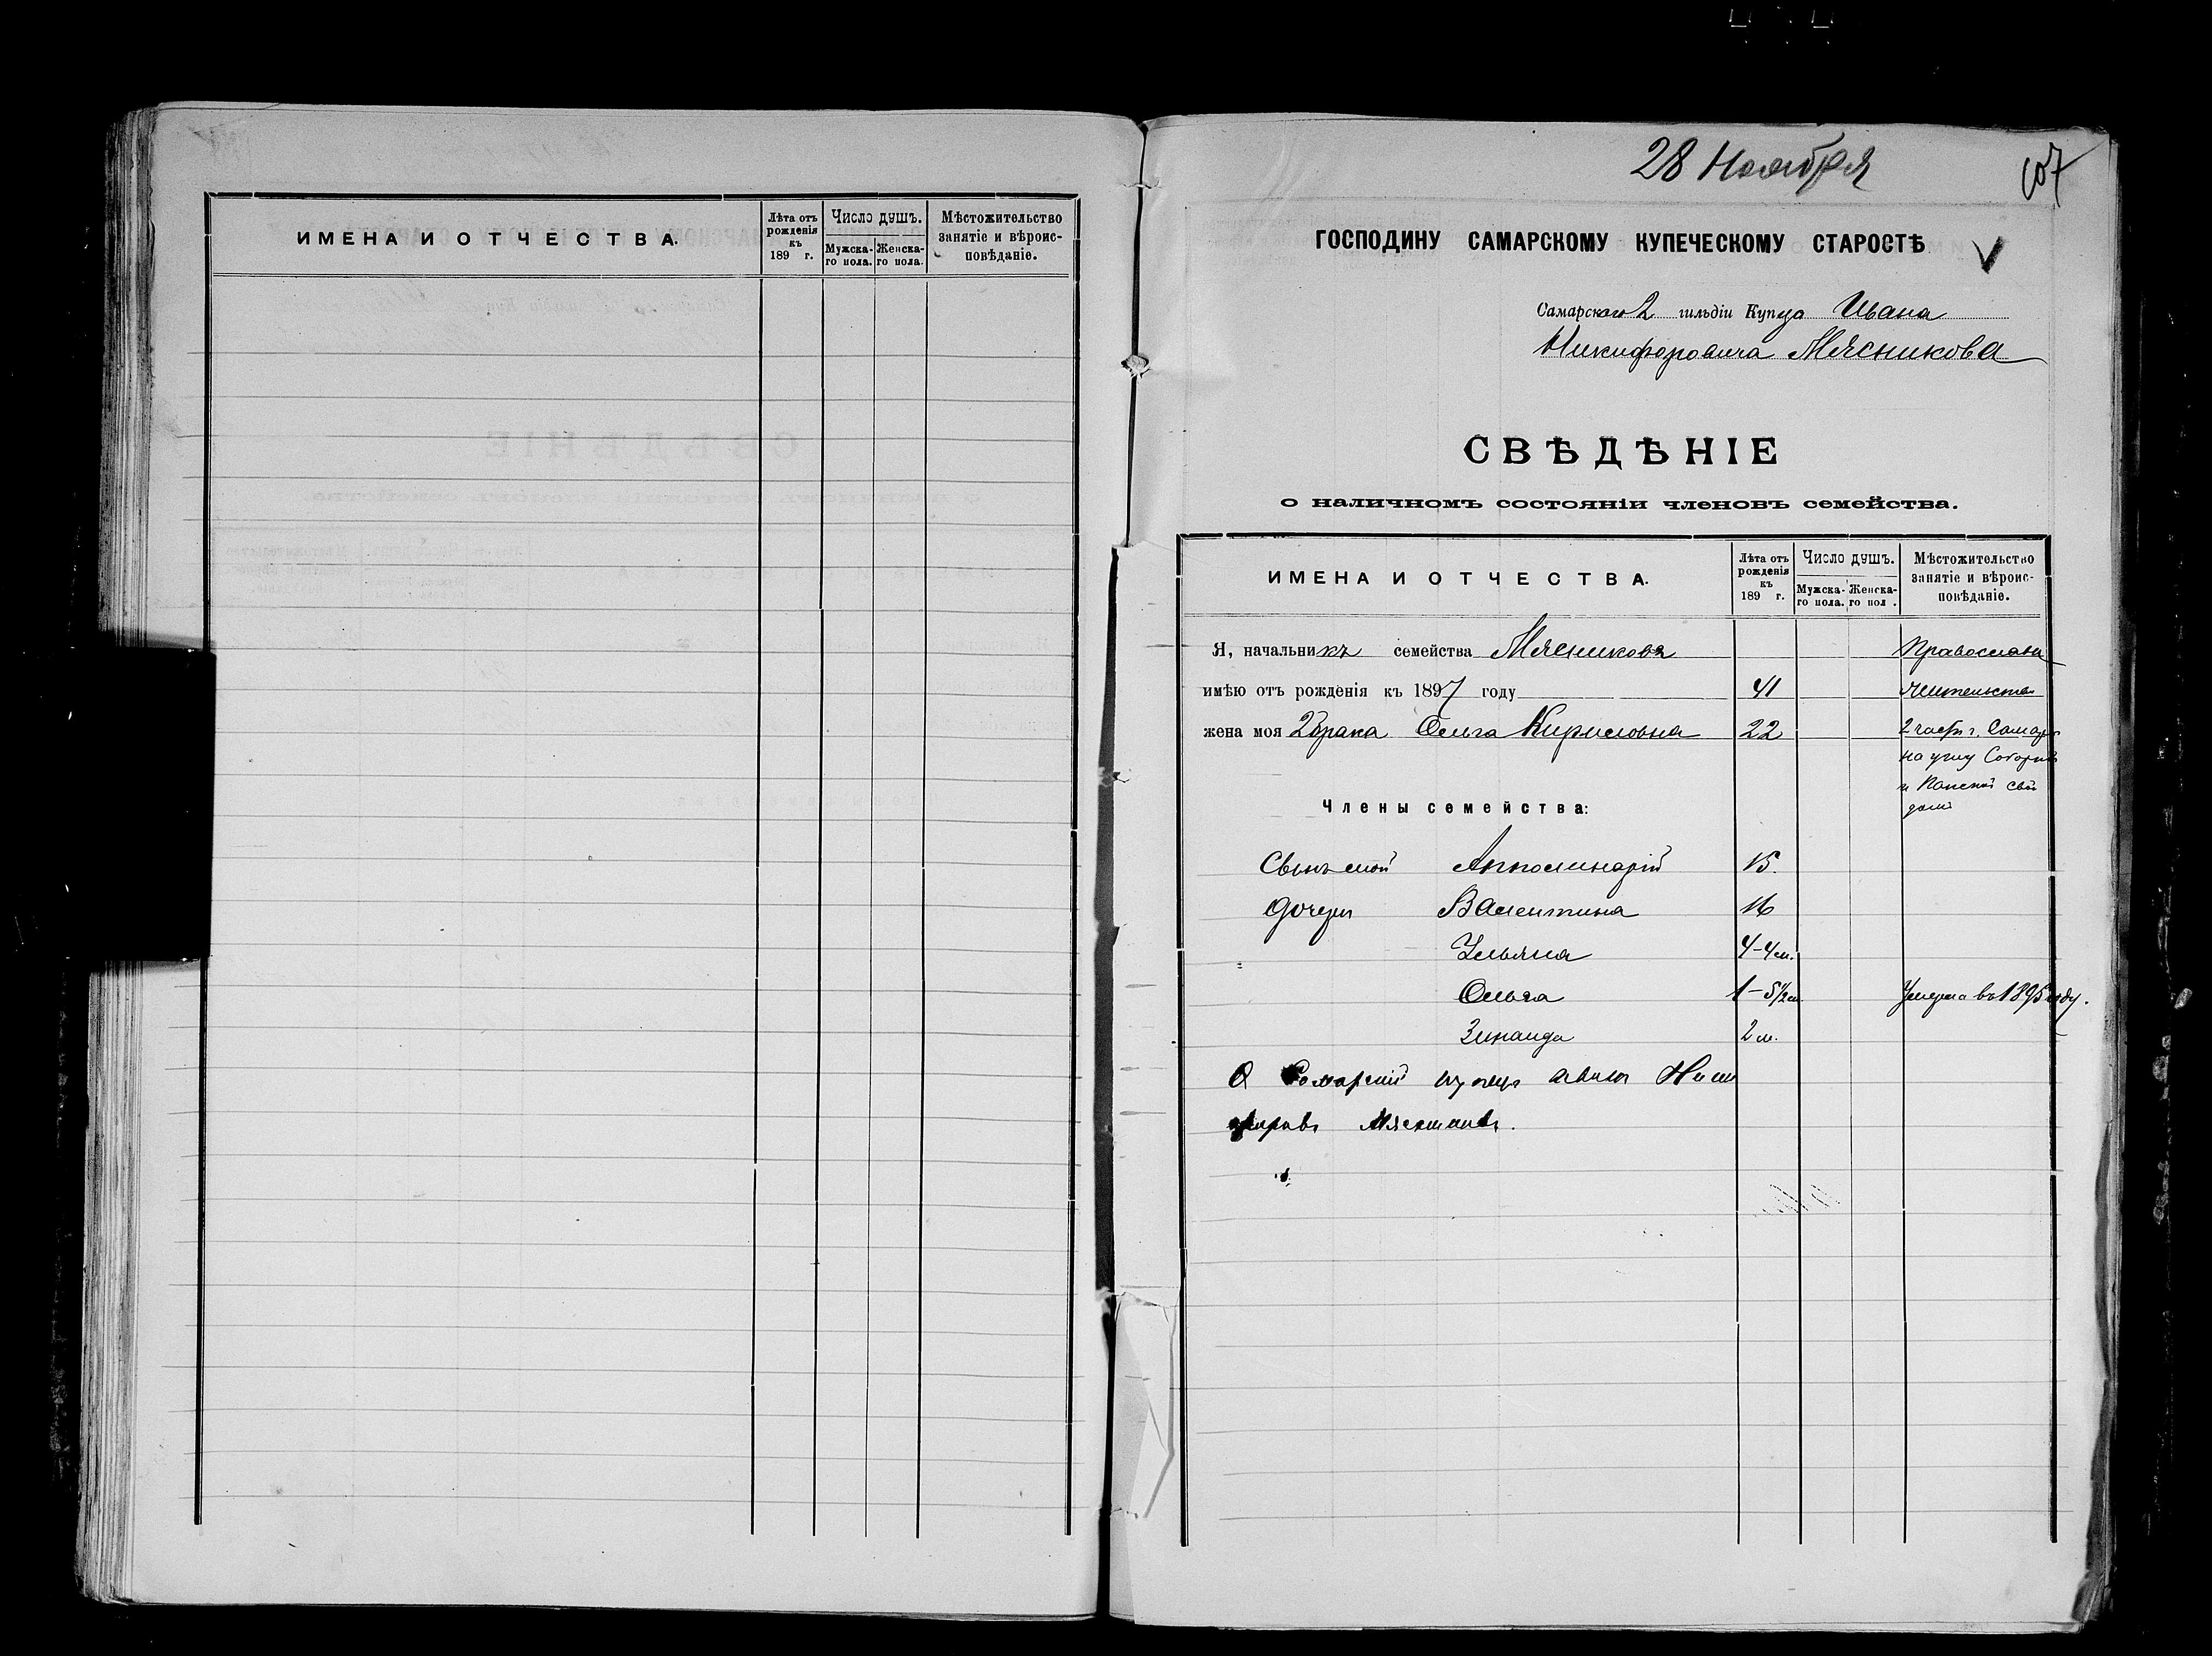 ИМЕНА И ОТЧЕСТВА.
Лѣта отъ рожденія къ 189 г.
Число душъ.
Мужска-го пола.
Женска-го пола.
Мѣстожительство занятіе и вѣроис-повѣданіе.
28 Ноября
107
ГОСПОДИНУ САМАРСКОМУ КУПЕЧЕСКОМУ СТАРОСТѢ
Самарскаго 2 гильдіи Купца Ивана
Никифоровича Мясникова
СВѢДѢНІЕ
о наличномъ состояніи членовъ семейства.
ИМЕНА И ОТЧЕСТВА.
Лѣта отъ рожденія къ 189 г.
Число душъ.
Мужска-го пола.
Женска-го пол .
Мѣстожительство занятіе и вѣроис-повѣданіе.
Я, начальникъ семейства Мясниковъ Православн
имѣю отъ рожденія къ 1897 году 41 жительство
жена моя 2 брака Ольга Кириловна 22 2 части г. Самар
на углу Соборной
и свой
домъ
Члены семейства:
Сынъ мой Апполинарій 15.
Дочери Валентина 16
Ульяна 4-4 м.
Ольга 1-5½ м Умерла въ 1895 году.
Зинаида 2 м.
Самарскій купецъ Иванъ Ники
форовъ Мясниковъ.